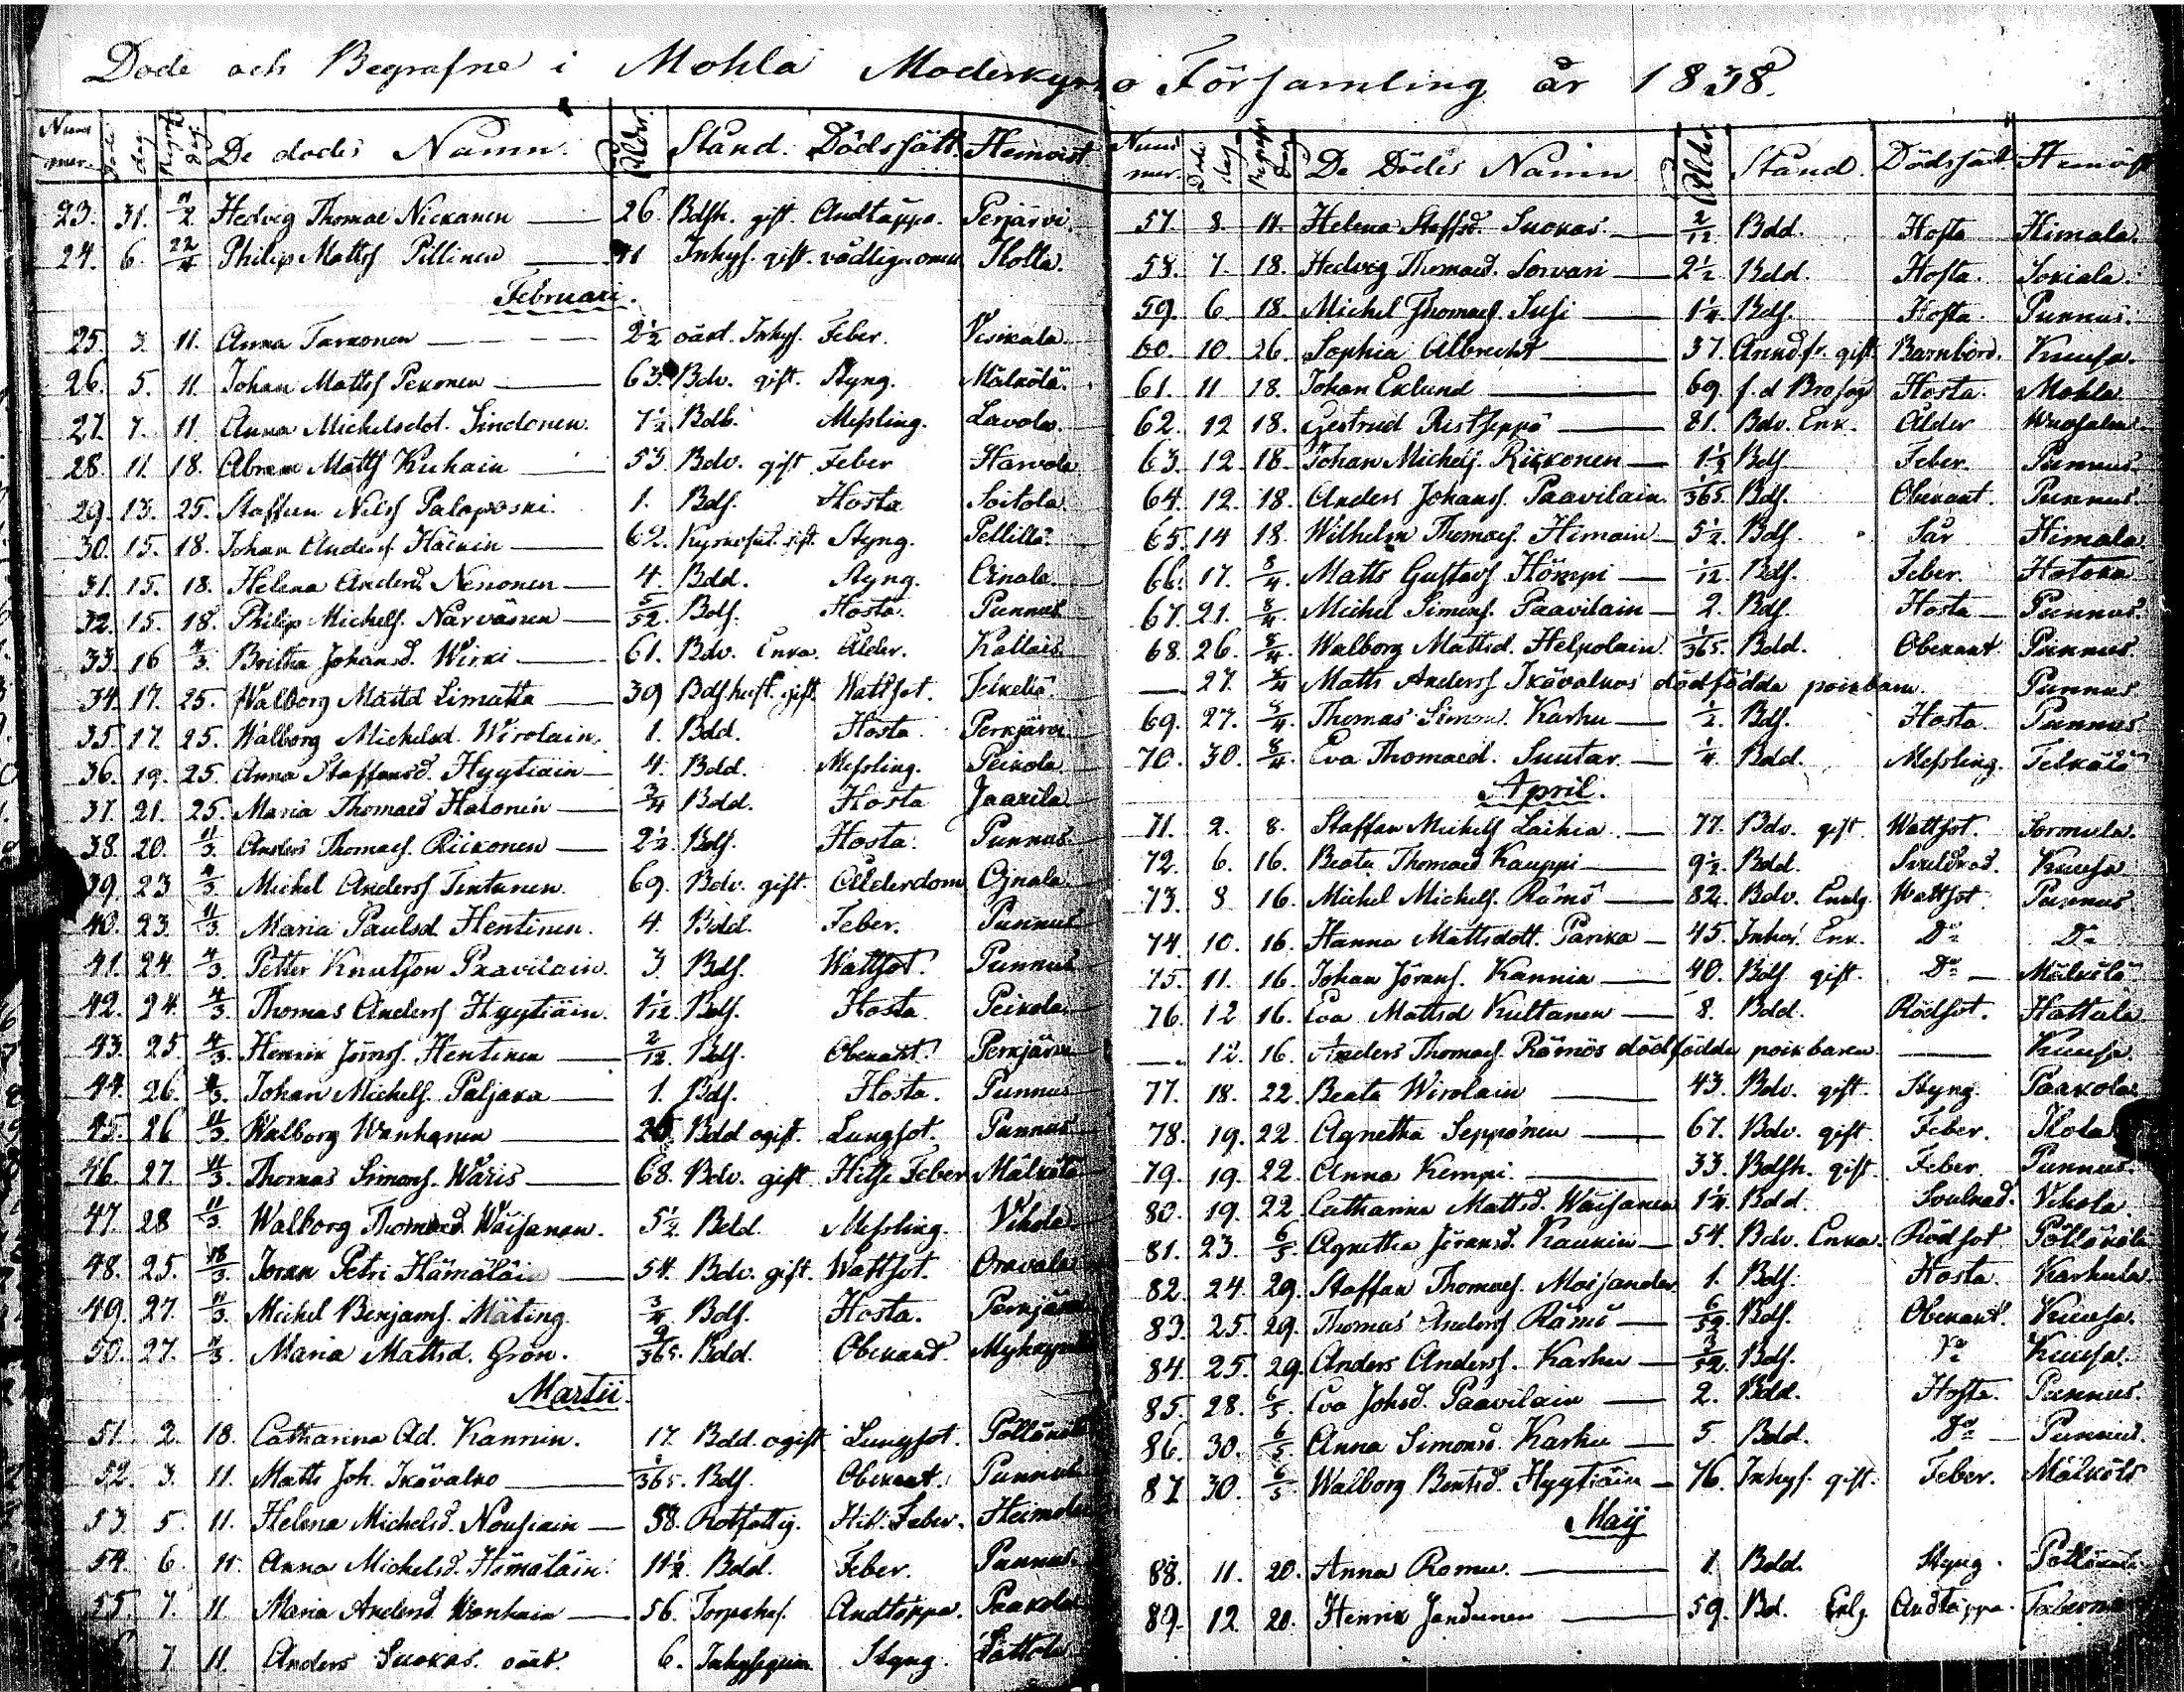 Dode och Begrafne i Mohla Moderkyrko Församling år 1838.
Num mer. Döds dag Begrafn. dag. De dodes Namn. Ålder. Stånd. Dödssätt. Hemvist
23. 31. 11/2 Hedvig Thomae Nickanen 26. Bdsh. gift. Andtäppa. Perjärvi.
24. 6. 22/4 Philip Matts Pillinen 41 Inhys. gift. Kolla.
Februari.
25. 3. 11. Anna Tarkonen 2 1/2 oäkt. Inhys. Feber. Vesikala.
26. 5. 11 Johan Matts Pekonen 63. Bdv. gift. Styng. Mälkölä.
27. 7. 11 Anna Michelsdot. Sindonen. 7 1/2 Bdb. Messling. Lavola.
28. 11 18. Abram Matts Kuhain 53. Bdv. gift Feber Harvola
29. 13. 25. Staffan Nils Palaposki. 1. Bds. Hosta Soitola.
30. 15. 18. Johan Anders Häikin 62. gift. Styng. Pellilä.
31. 15. 18. Helena Andersd. Nenonen 4. Bdd. Styng. Oinala.
32. 15. 18. Philip Michels. Närvänen 5/52. Bds. Hosta. Punnus
33. 16 4/3. Britha Johansd. Wirki 61. Bdv. Enka. Ålder. Kallais
34. 17. 25. Walborg Matsd Limatta 39 Bdshust. gift Wattsot.
35. 17. 25. Walborg Michelsd. Wirolain. 1. Bdd. Hosta. Perkjärvi
36. 19. 25. Anna Staffansd. Hyytiäin 4. Bdd. Messling. Peikola.
37. 21. 25. Maria Thomaed Halonin 3/4 Bdd. Hosta Jaarila
38. 20. 11/3. Anders Thomaes. Riikonen 2 1/2. Bds. Hosta. Punnus.
39. 23 4/3. Michel Anders Tintunen. 69. Bdv. gift. Ålderdom Oinala.
40. 23. 11/3. Maria Paulsd Hentinen. 4. Bdd. Feber. Punnus
41. 24. 4/3. Petter Knutson Paavilain. 3. Bds. Wattsot. Punnus
42. 24. 4/3. Thomas Anders Hyytiäin. 1 1/12. Bds. Hosta. Peikola.
43. 25. 4/3. Henrik Jörans. Hentinen 2/12. Bds. Obekant. Perkjärvi
44. 26. 4/3. Johan Michels. Paljaka 1. Bds. Hosta. Punnus
45. 26 11/3. Walborg Wanhanen Bdd ogift. Lungsot. Punnus
46. 27. 11/3. Thomas Simons. Waris 68. Bdv. gift Feber Mälkölä
47. 28 11/3. Walborg Thomaed. Wäisänen. 5 1/2. Bdd. Messling. Vihola
48. 25. 18/3. Joran Petri Hämäläin 54. Bdv. gift. Wattsot. Oravala
49. 27. 11/3. Michel Benjams. Mäting. 3/4. Bds. Hosta. Perkjärvi
50. 27. 11/3. Maria Mattsd. Grön. Bdd. Obekant.
Martii.
51. 2. 18. Catharina Ad. Kannin. 17. Bdd. ogift Lungsot. Pölläkälä
52. 3. 11. Matts Joh. Ikävalko 1/365. Bds. Obekant. Punnus
53 5. 11. Helena Michelsd. Nousiain 58. Rotfattig. Hit. Feber. Heimola
54. 6. 11. Anna Michelsd. Hämäläin. 11 1/2. Bdd. Feber. Punnus
55. 7. 11. Maria Andersd. Wanhain 56. Andtäppa. Paakola
7. 11. Anders Suokas. oäkt. 6. Styng.
Num mer. Döds dag Begrafn. dag De Dödes Namn Ålder Stånd. Dödssätt. Hemvist
57. 8. 11. Helena Staffsd. Suokas. 2/12 Bdd. Hosta Kimala.
58. 7. 18. Hedvig Thomaed. Sorvari 2 1/2 Bdd. Hosta. Sokiala.
59. 6 18. Michel Thomaes. Susi 1 1/4. Bds. Hosta. Punnus.
60. 10. 26. Sophia Albrecht 37. gift. Barnbörd. Kuusa.
61. 11 18. Johan Eklund 69. f.d Hosta. Mohla
62. 12 18. Gertrud Ristseppä 81. Bdv. Enk. Ålder
63. 12 18. Johan Michels. Rikkonen 1 1/2 Bds Feber. Punnus.
64. 12. 18. Anders Johans. Paavilain. 1/365. Bds. Obekant. Punnus.
65. 14 18. Wilhelm Thomaes. Himain 5 1/2. Bds. Sår Himala.
66. 17. 8/4. Matts Gustavs. Hömpi 1/12. Bds. Feber. Hotoka
67. 21. 8/4. Michel Simons. Paavilain 2. Bds. Hosta Punnus.
68. 26. 8/4. Walborg Mattsd. Helkolain. 1/365. Bdd. Obekant Punnus.
27. 8/4 Matts Anders Ikävalkos dödfödda poikbarn. Punnus
69. 27. 8/4. Thomas Simons. Karhu 1/2. Bds. Hosta. Punnus
70. 30. 8/4. Eva Thomaed. Suutar. 1/4 Bdd. Messling. Telkälä
April.
71. 2. 8. Staffan Michels Laihia. 77. Bdv. gift. Wattsot. Sormula.
72. 6. 16. Beata Thomaed Kauppi 9 1/2. Bdd. Kuusa
73. 8 16. Michel Michels. Rämö 82. Bdv. Enkl. Wattsot. Punnus.
74. 10. 16. Hanna Mattsdott. Parika 45. Inhys. Enk. Do Do
75. 11. 16. Johan Jörans. Kannia 40. Bds gift. Do Mälkölä
76. 12 16. Eva Mattsd Kultanen 8. Bdd. Rödsot. Hattula
12. 16. Anders Thomaes. Rämös dödfödda poikbarn. Kuusa.
77. 18. 22. Beata Wirolain 43. Bdv. gift. Styng. Paakola
78. 19. 22. Agnetha Seppönen 67. Bdv. gift. Feber. Kola
79. 19. 22. Anna Kempi. 33. Bdsh. gift. Feber. Punnus.
80. 19. 22. Catharina Mattsd. Wäisänen 1 1/4. Bdd. Vihola.
81. 23. 6/5. Agnetha Jöransd. Kaukin 54. Bdv. Enka. Rödsot. Pölläkälä
82. 24 29. Staffan Thomaes. Moisander 1. Bds. Hosta. Karhula
83. 25. 29. Thomas Anders Rämö Bds. Obekant. Kuusa.
84. 25. 29. Anders Anders. Karhu 3/52. Bds. Do Kuusa.
85. 28. 6/5. Eva Johsd. Paavilain 2. Bdd. Hosta. Punnus.
86. 30. 6/5. Anna Simonsd. Karhu 5. Bdd. Do Punnus.
87 30. 6/5. Walborg Hyytiäin 76. Inhys. gift. Feber. Mälkölä
Maij
88. 11. 20. Anna Romu. 1. Bdd. Styng. Pölläkälä
89. 12. 20. Henrik Jandunen 59. Bd. Enkl. Andtäppa.